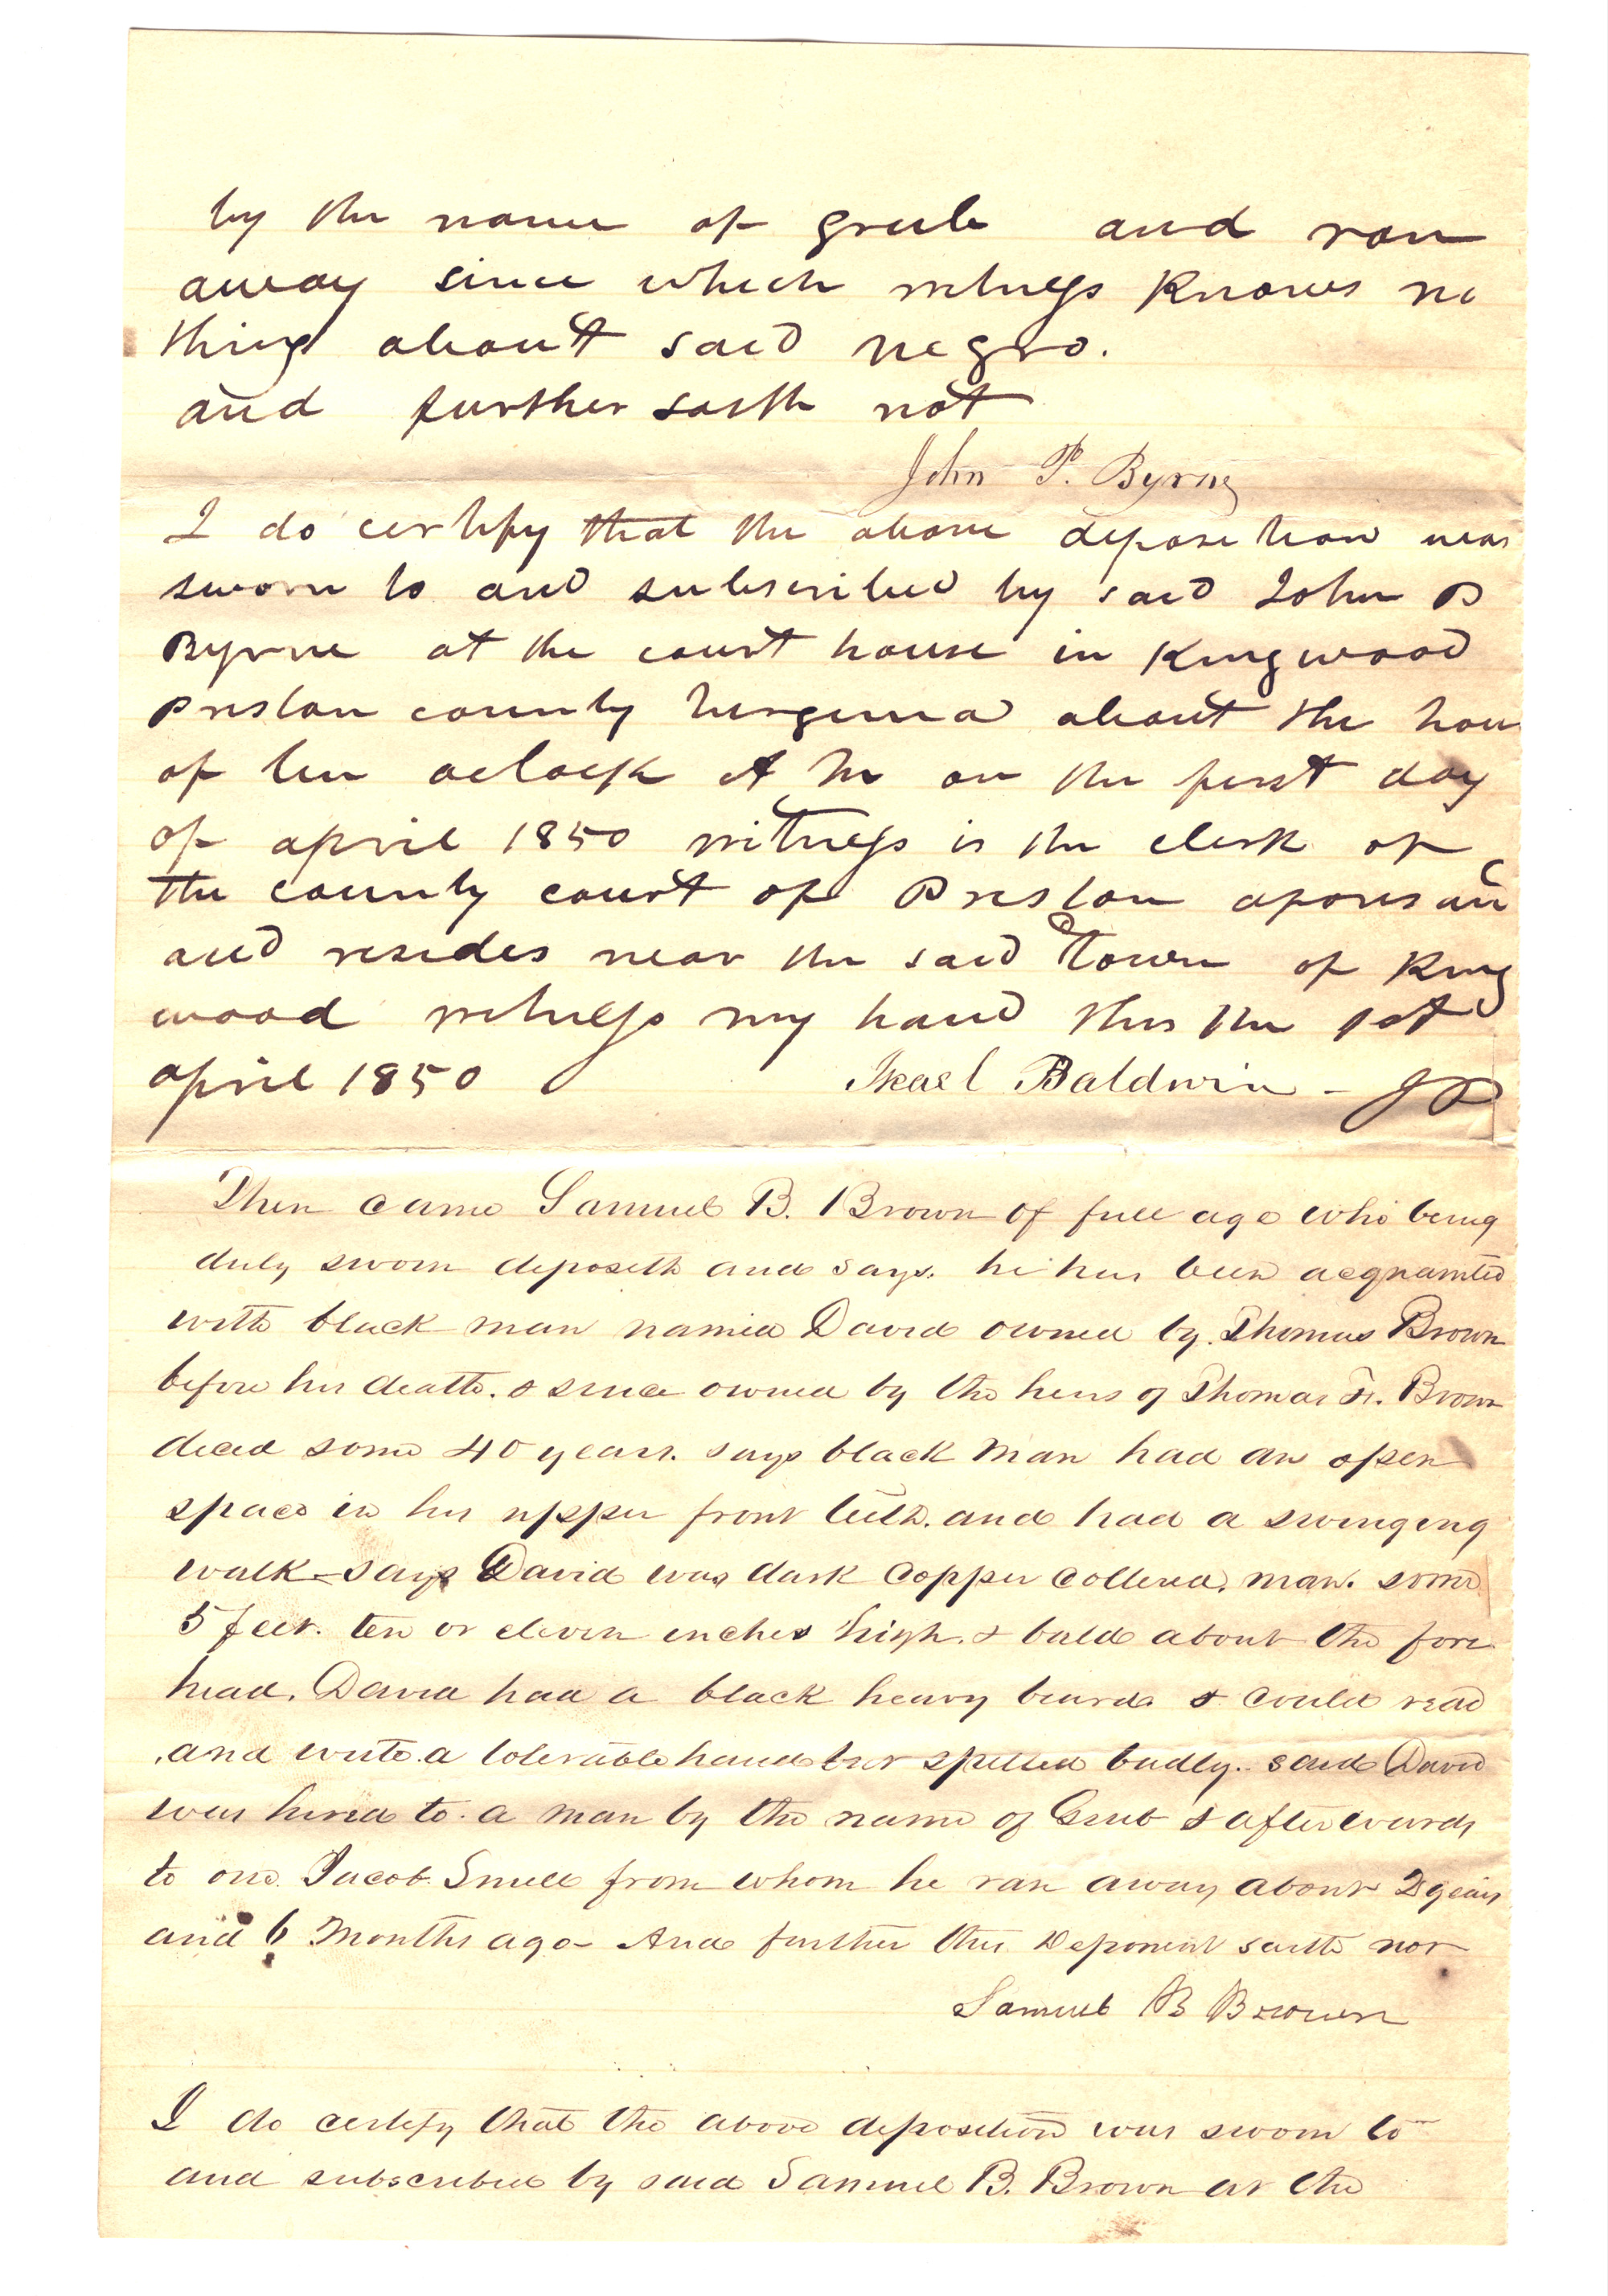 by the name of grub and ran
away since which witness knows no
thing about said negro.
and further saith not
John P. Byrne
I do certify that the above deposition was
sworn to and subscribed by said John P
Byrne at the court house in Kingwood
Preston county Virginia about the hour
of ten oclock A M on the first day
of april 1850 witness is the clerk of
the county court of Preston aforesaid
and resides near the said Town of King
wood witness my hand this the 1st
april 1850 Baldwin - JP
Then came Samuel B. Brown of full age who being
duly sworn deposeth and says. he has been acquainted
with black man named David owned by Thomas Brown
before his death. & since owned by the heirs of Thomas Brown
deced some 40 years. says black man had an open
space in his upper front teeth. and had a swinging
walk - says David was dark copper collered, man. some
5 feet. ten or eleven inches high. & bald about the fore
head. David had a black heavy beard & could read
and write a tolerable hand but spelled badly. said David
was hired to a man by the name of Grub & afterwards
to one Jacob Smell from whom he ran away about 2 years
and 6 Months ago - And further this Deponent saith not
Samuel B Brown
I do certify that the above deposition was sworn to
and subscribed by said Samuel B. Brown at the